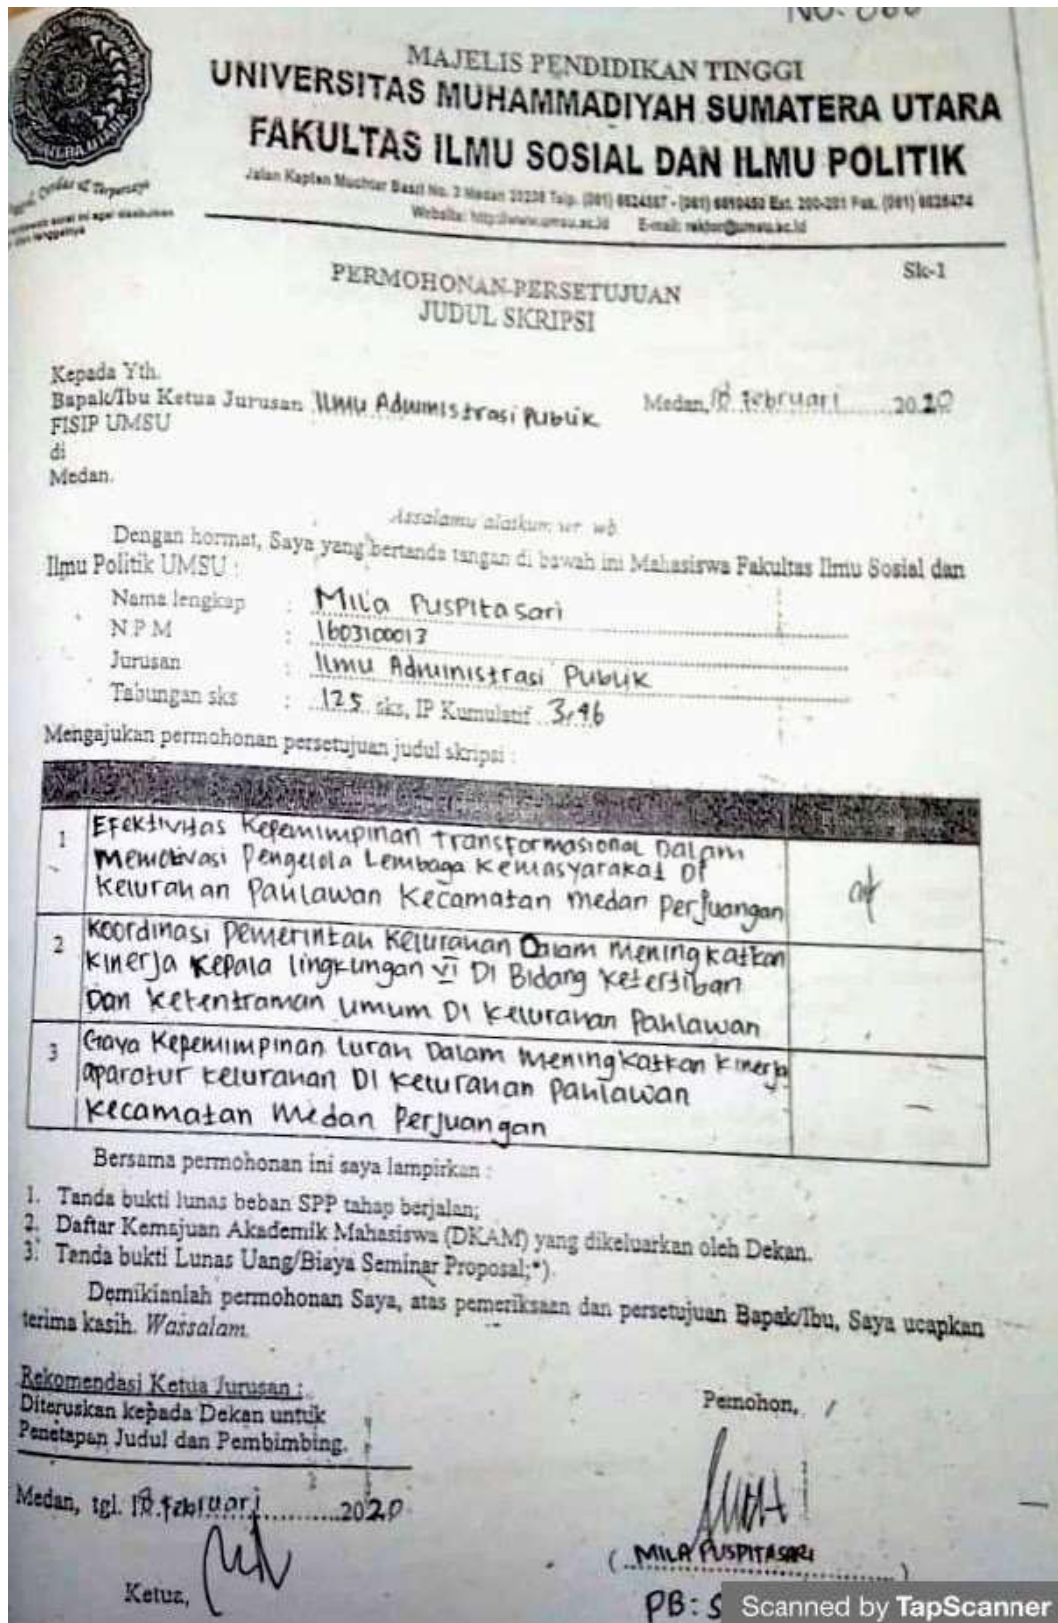 MAJELIS PENDIDIKAN TINGGI
UNIVERSITAS MUHAMMADIYAH SUMATERA UTARA
FAKULTAS ILMU SOSIAL DAN ILMU POLITIK
Jalan Kapten Muchtar Basri No. 3 Medan 20238 Telp. (061) 6624567 - (061) 6610450 Ext. 200-201 Fax. (061) 6625474
Website: http://www.umsu.ac.id E-mail: rektor@umsu.ac.id
Sk-1
PERMOHONAN PERSETUJUAN
JUDUL SKRIPSI
Kepada Yth.
Bapak/Ibu Ketua Jurusan Ilmu Administrasi Publik
Medan, Februari 2020
FISIP UMSU
di
Medan.
Assalamu alaikum wr. wb.
Dengan hormat, Saya yang bertanda tangan di bawah ini Mahasiswa Fakultas Ilmu Sosial dan
Ilmu Politik UMSU :
Nama lengkap : Mila Puspitasari
N.P.M : 1603100013
Jurusan : Ilmu Administrasi Publik
Tabungan sks : 125 sks, IP Kumulatif 3,46
Mengajukan permohonan persetujuan judul skripsi :
1 Efektivitas Kepemimpinan Transformasional Dalam
Memotivasi Pengelola Lembaga Kemasyarakat Di
Kelurahan Pahlawan Kecamatan Medan Perjuangan
2 Koordinasi Pemerintah Kelurahan Dalam Meningkatkan
Kinerja Kepala lingkungan VI Di Bidang Ketertiban
Dan Ketentraman Umum Di Kelurahan Pahlawan
3 Gaya Kepemimpinan Lurah Dalam Meningkatkan Kinerja
aparatur kelurahan Di Kelurahan Pahlawan
Kecamatan Medan Perjuangan
Bersama permohonan ini saya lampirkan :
1. Tanda bukti lunas beban SPP tahap berjalan;
2. Daftar Kemajuan Akademik Mahasiswa (DKAM) yang dikeluarkan oleh Dekan.
3. Tanda bukti Lunas Uang/Biaya Seminar Proposal;*)
Demikianlah permohonan Saya, atas pemeriksaan dan persetujuan Bapak/Ibu, Saya ucapkan
terima kasih. Wassalam.
Rekomendasi Ketua Jurusan :
Diteruskan kepada Dekan untuk
Penetapan Judul dan Pembimbing.
Medan, tgl. Februari 2020
Ketua,
Pemohon,
(MILA PUSPITASARI)
PB: S
Scanned by TapScanner